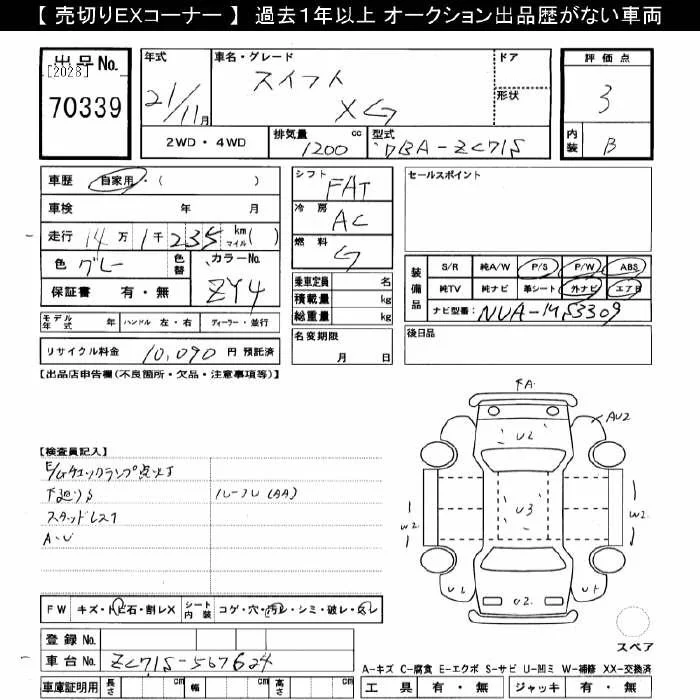 【 売切りEXコーナー 】 過去１年以上 オークション出品歴がない車両
出品No.
[2028]
70339
年式
21/11月
車名・グレード
スイフト
XG
ドア
形状
評価点
3
内装
B
2WD・4WD
排気量 1200 cc
型式 DBA-ZC71S
車歴 自家用・( )
車検 年 月
走行 14万 1千 235 km マイル ( )
色 グレー 色替
カラーNo. ZY4
保証書 有・無
シフト FAT
冷房 AC
燃料 G
乗車定員 名
積載量 kg
総重量 kg
セールスポイント
装備品
S/R 純A/W P/S P/W ABS
純TV 純ナビ 革シート 外ナビ エアB
ナビ型番: NVA-MS3309
モデル年式 年 ハンドル 左・右 ディーラー・並行
名変期限 月 日
後日品
リサイクル料金 10,090 円 預託済
【出品店申告欄(不良箇所・欠品・注意事項等)】
【検査員記入】
E/Gチェックランプ点灯
下廻りS
スタッドレス
A・U
ルーフレ(AA)
FA.
AU2
U2
W2
U3
W2
U2
FW キズ・トビ石・割レX
シート内装 コゲ・穴・汚レ・シミ・破レ
登録No.
車台No. ZC71S-567624
車庫証明用 長さ cm 幅 cm 高さ cm
スペア
A-キズ C-腐食 E-エクボ S-サビ U-凹ミ W-補修 XX-交換済
工具 有・無 ジャッキ 有・無